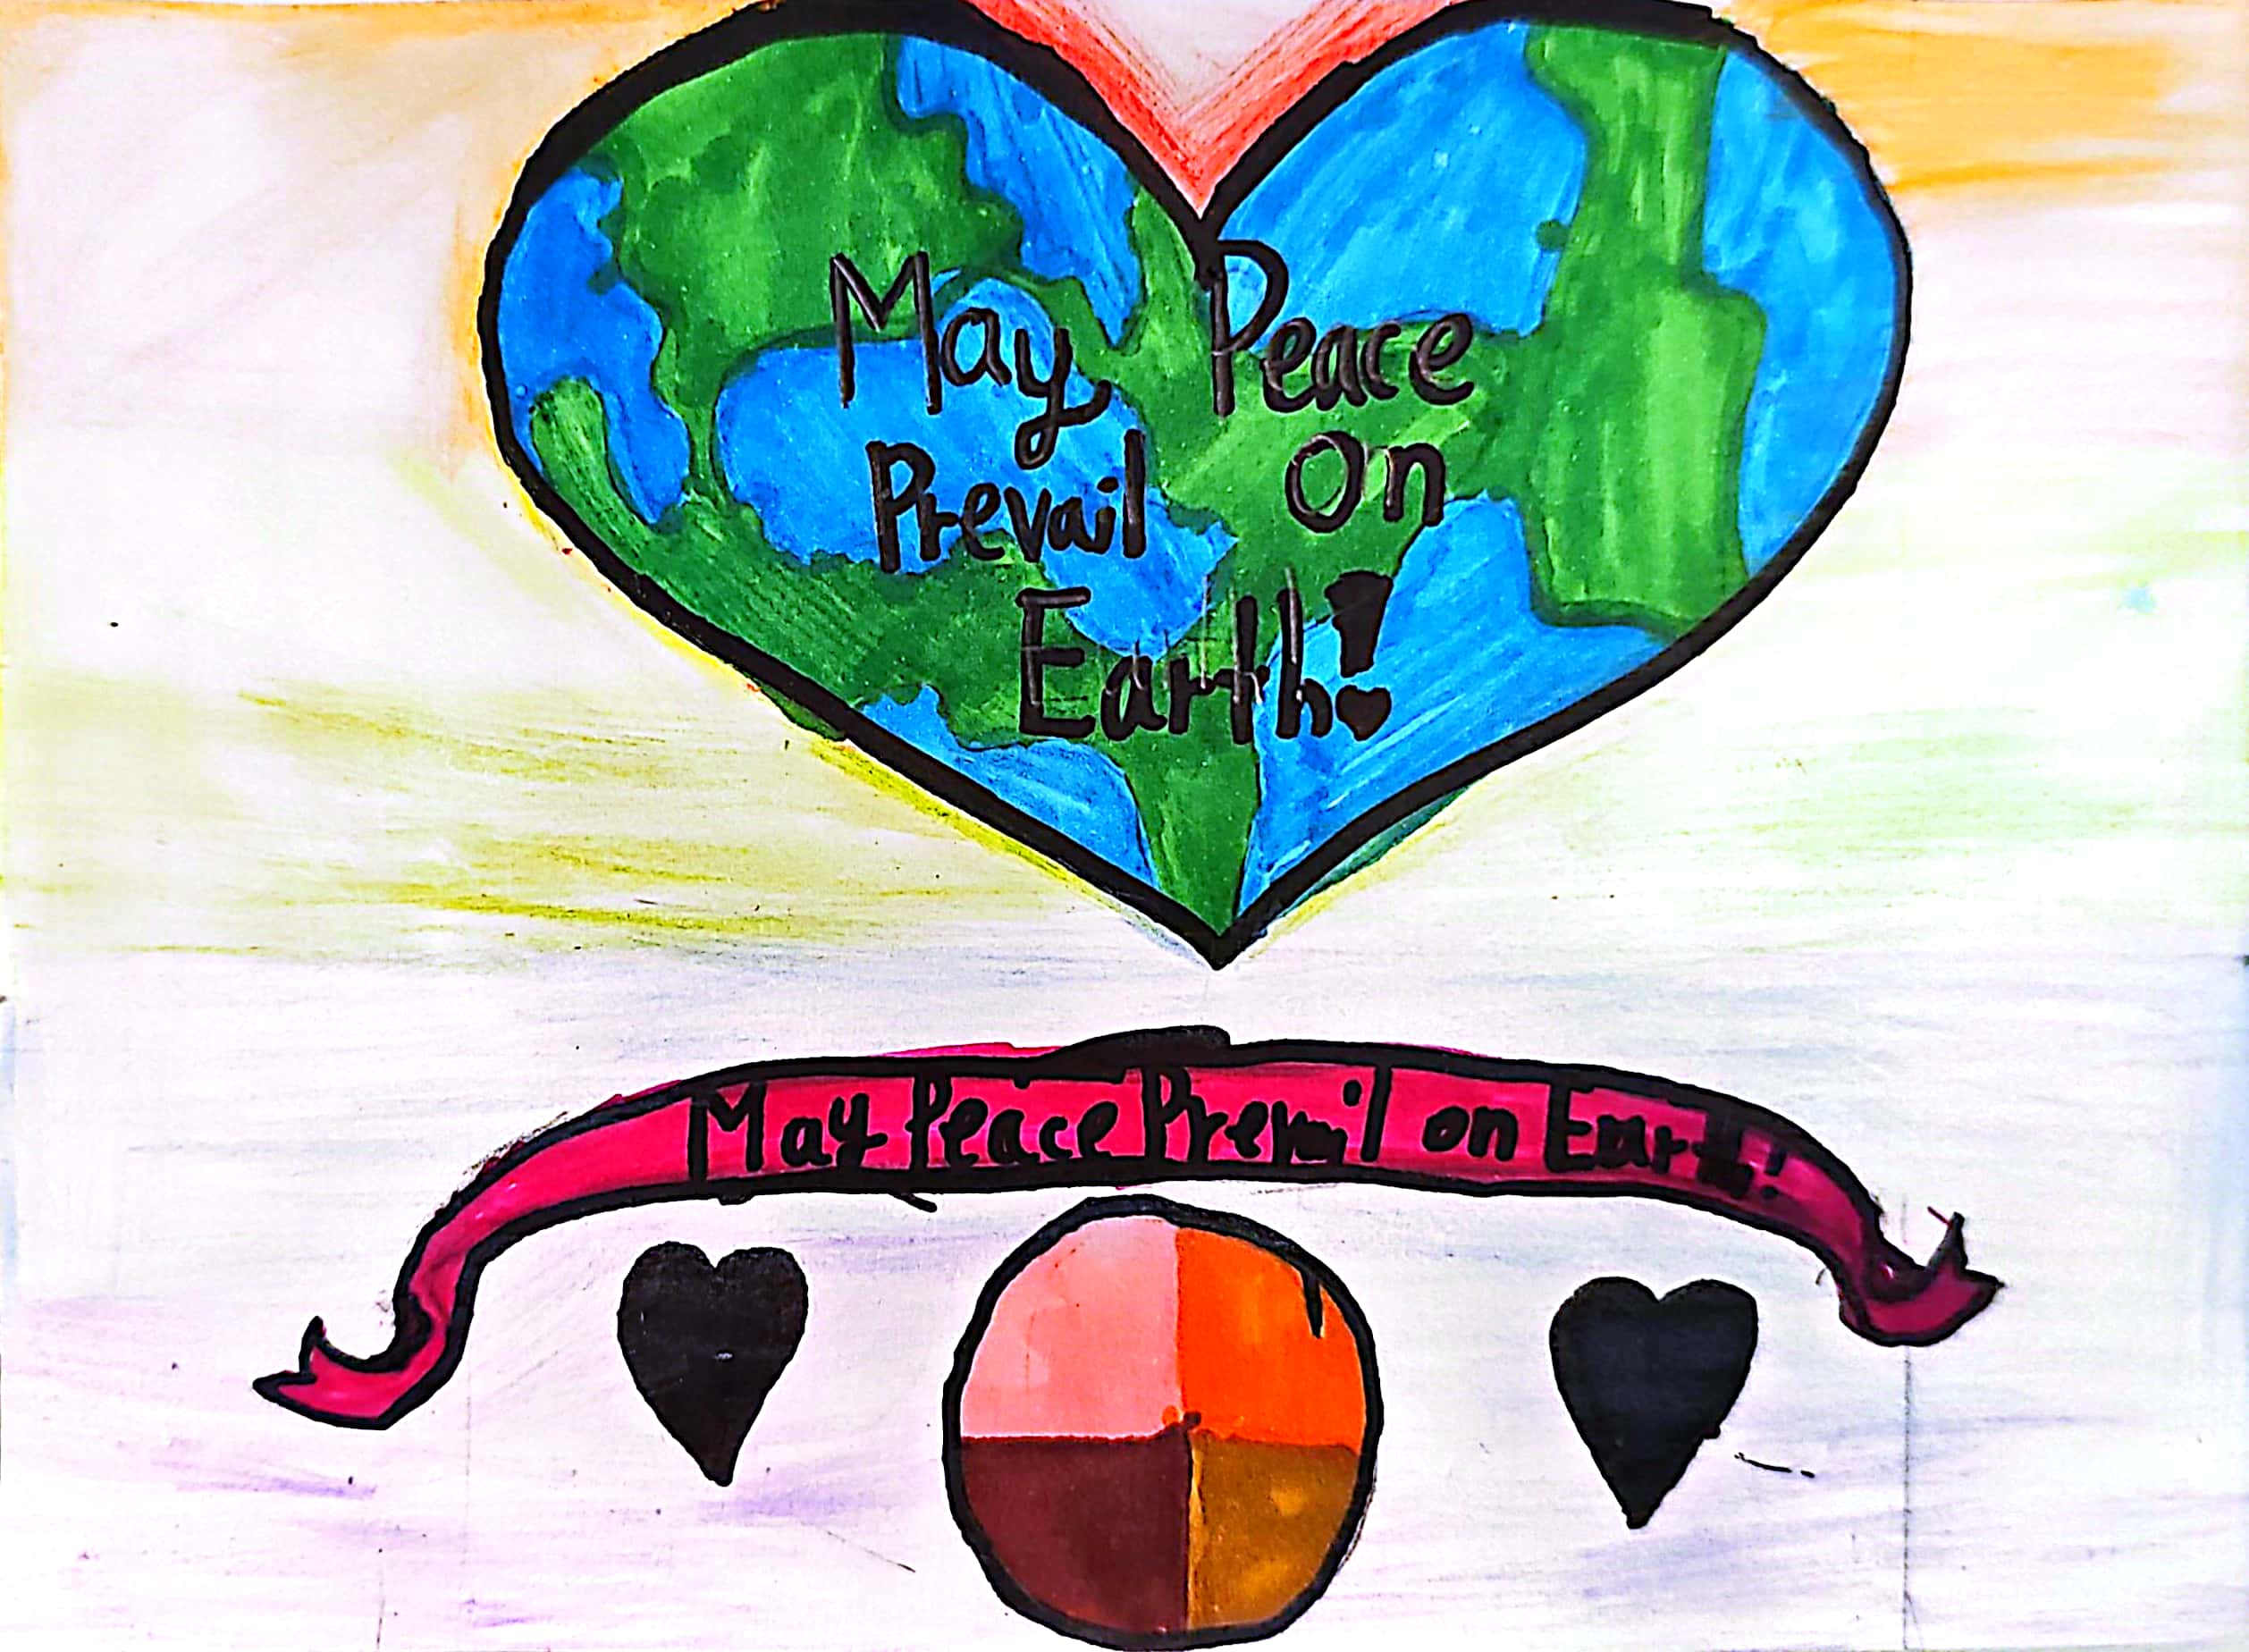 May Peace
Prevail on
Earth!
May Peace Prevail on Earth!